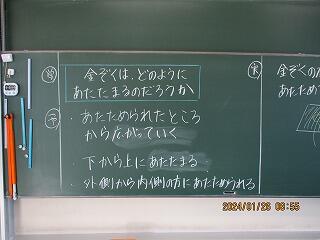 金ぞくは、どのように
あたたまるのだろうか
・あたためられたところ
から広がっていく
・下から上にあたたまる
・外側から内側の方にあたためられる
金ぞくの
あたため
2024/01/26